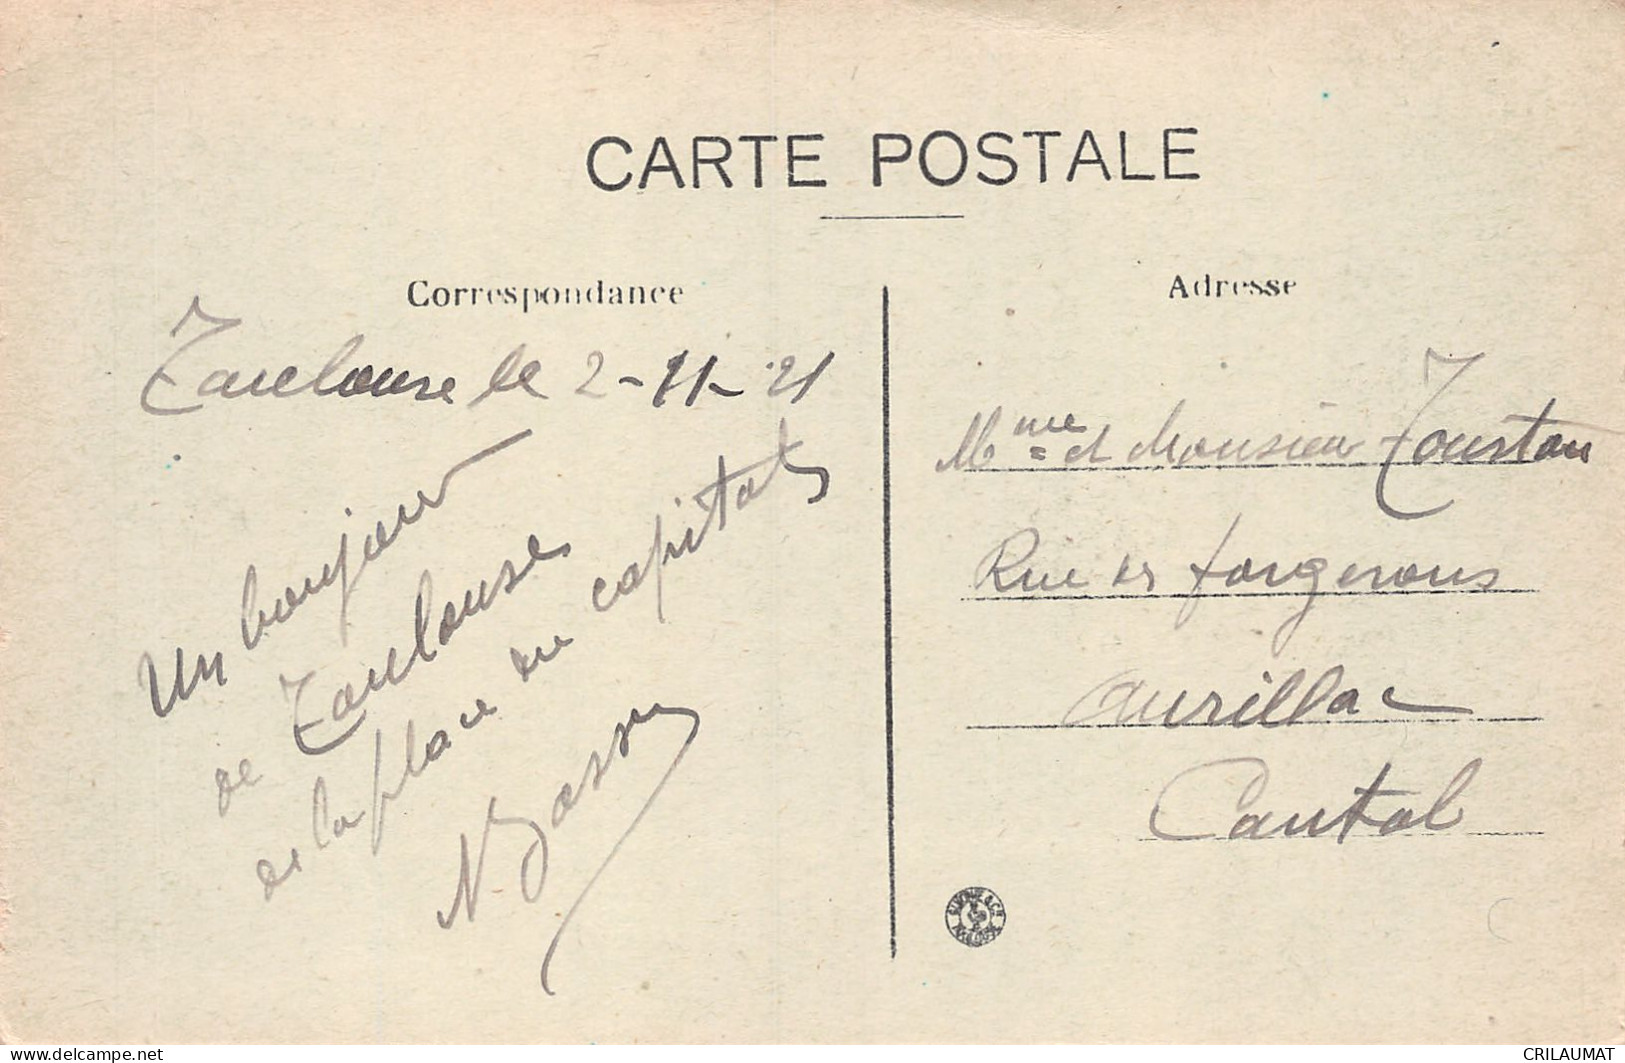 CARTE POSTALE
Correspondance
Toulouse le 2-11-21
Un bonjour
de Toulouse
de la place du capitole
Adresse
Mme et Monsieur Toustou
Rue des forgerons
Aurillac
Cantal
delcampe.net
CRILAUMAT